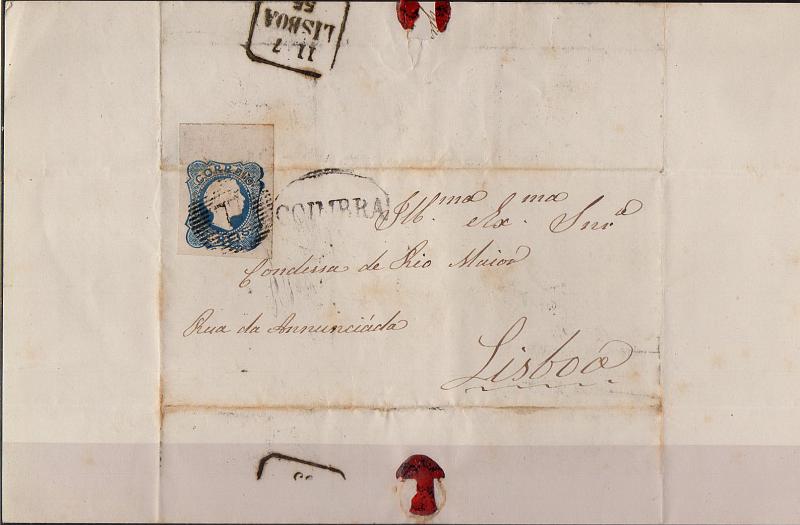 11 7
LISBOA
55
CORREIO
COIMBRA
Ill.ma Ex.ma Snr.a
Condessa de Rio Maior
Rua da Annunciáda
Lisboa